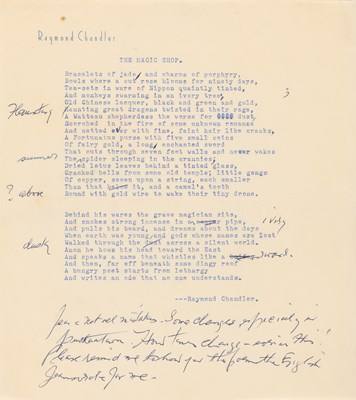 Raymond Chandler
THE MAGIC SHOP.
Bracelets of jade, and charms of porphyry,
Bowls where a cut rose blooms for ninety days,
Tea-sets in ware of Nippon quaintly tinted,
And monkeys swarming in an ivory tree,
Old Chinese lacquer, black and green and gold,
Haunting great dragons twisted in their rage,
A Watteau shepherdess the worse for dust,
Scorched in the fire of some unknown romance
And netted over with fine, faint hair like cracks,
A Fortunatus purse with five small veins
Of fairy gold, a long, enchanted sword
That cuts through seven foot walls and never wakes
The spider sleeping in the crannies,
Dried lotus leaves behind a tinted glass,
Cracked bells from some old temple, little gongs
Of copper, seven upon a string, each smaller
Than that it, and a camel's tooth
Bound with gold wire to make their tiny drone.
summer
? above
Behind his wares the grave magician sits,
And smokes strong incense in pipe,
ivory
And pulls his beard, and dreams about the days
When earth was young, and gods whose names are lost
Walked through the across a silent world.
dusky
Anon he bows his head toward the East
And speaks a name that whistles like a
sword.
And then, far off beneath some dingy roof
A hungry poet starts from lethargy
And writes an ode that no one understands.
---Raymond Chandler.
Some changes especially in
punctuation. How times change - even in this!
Please remind me to show you the poem the English
wrote for me -